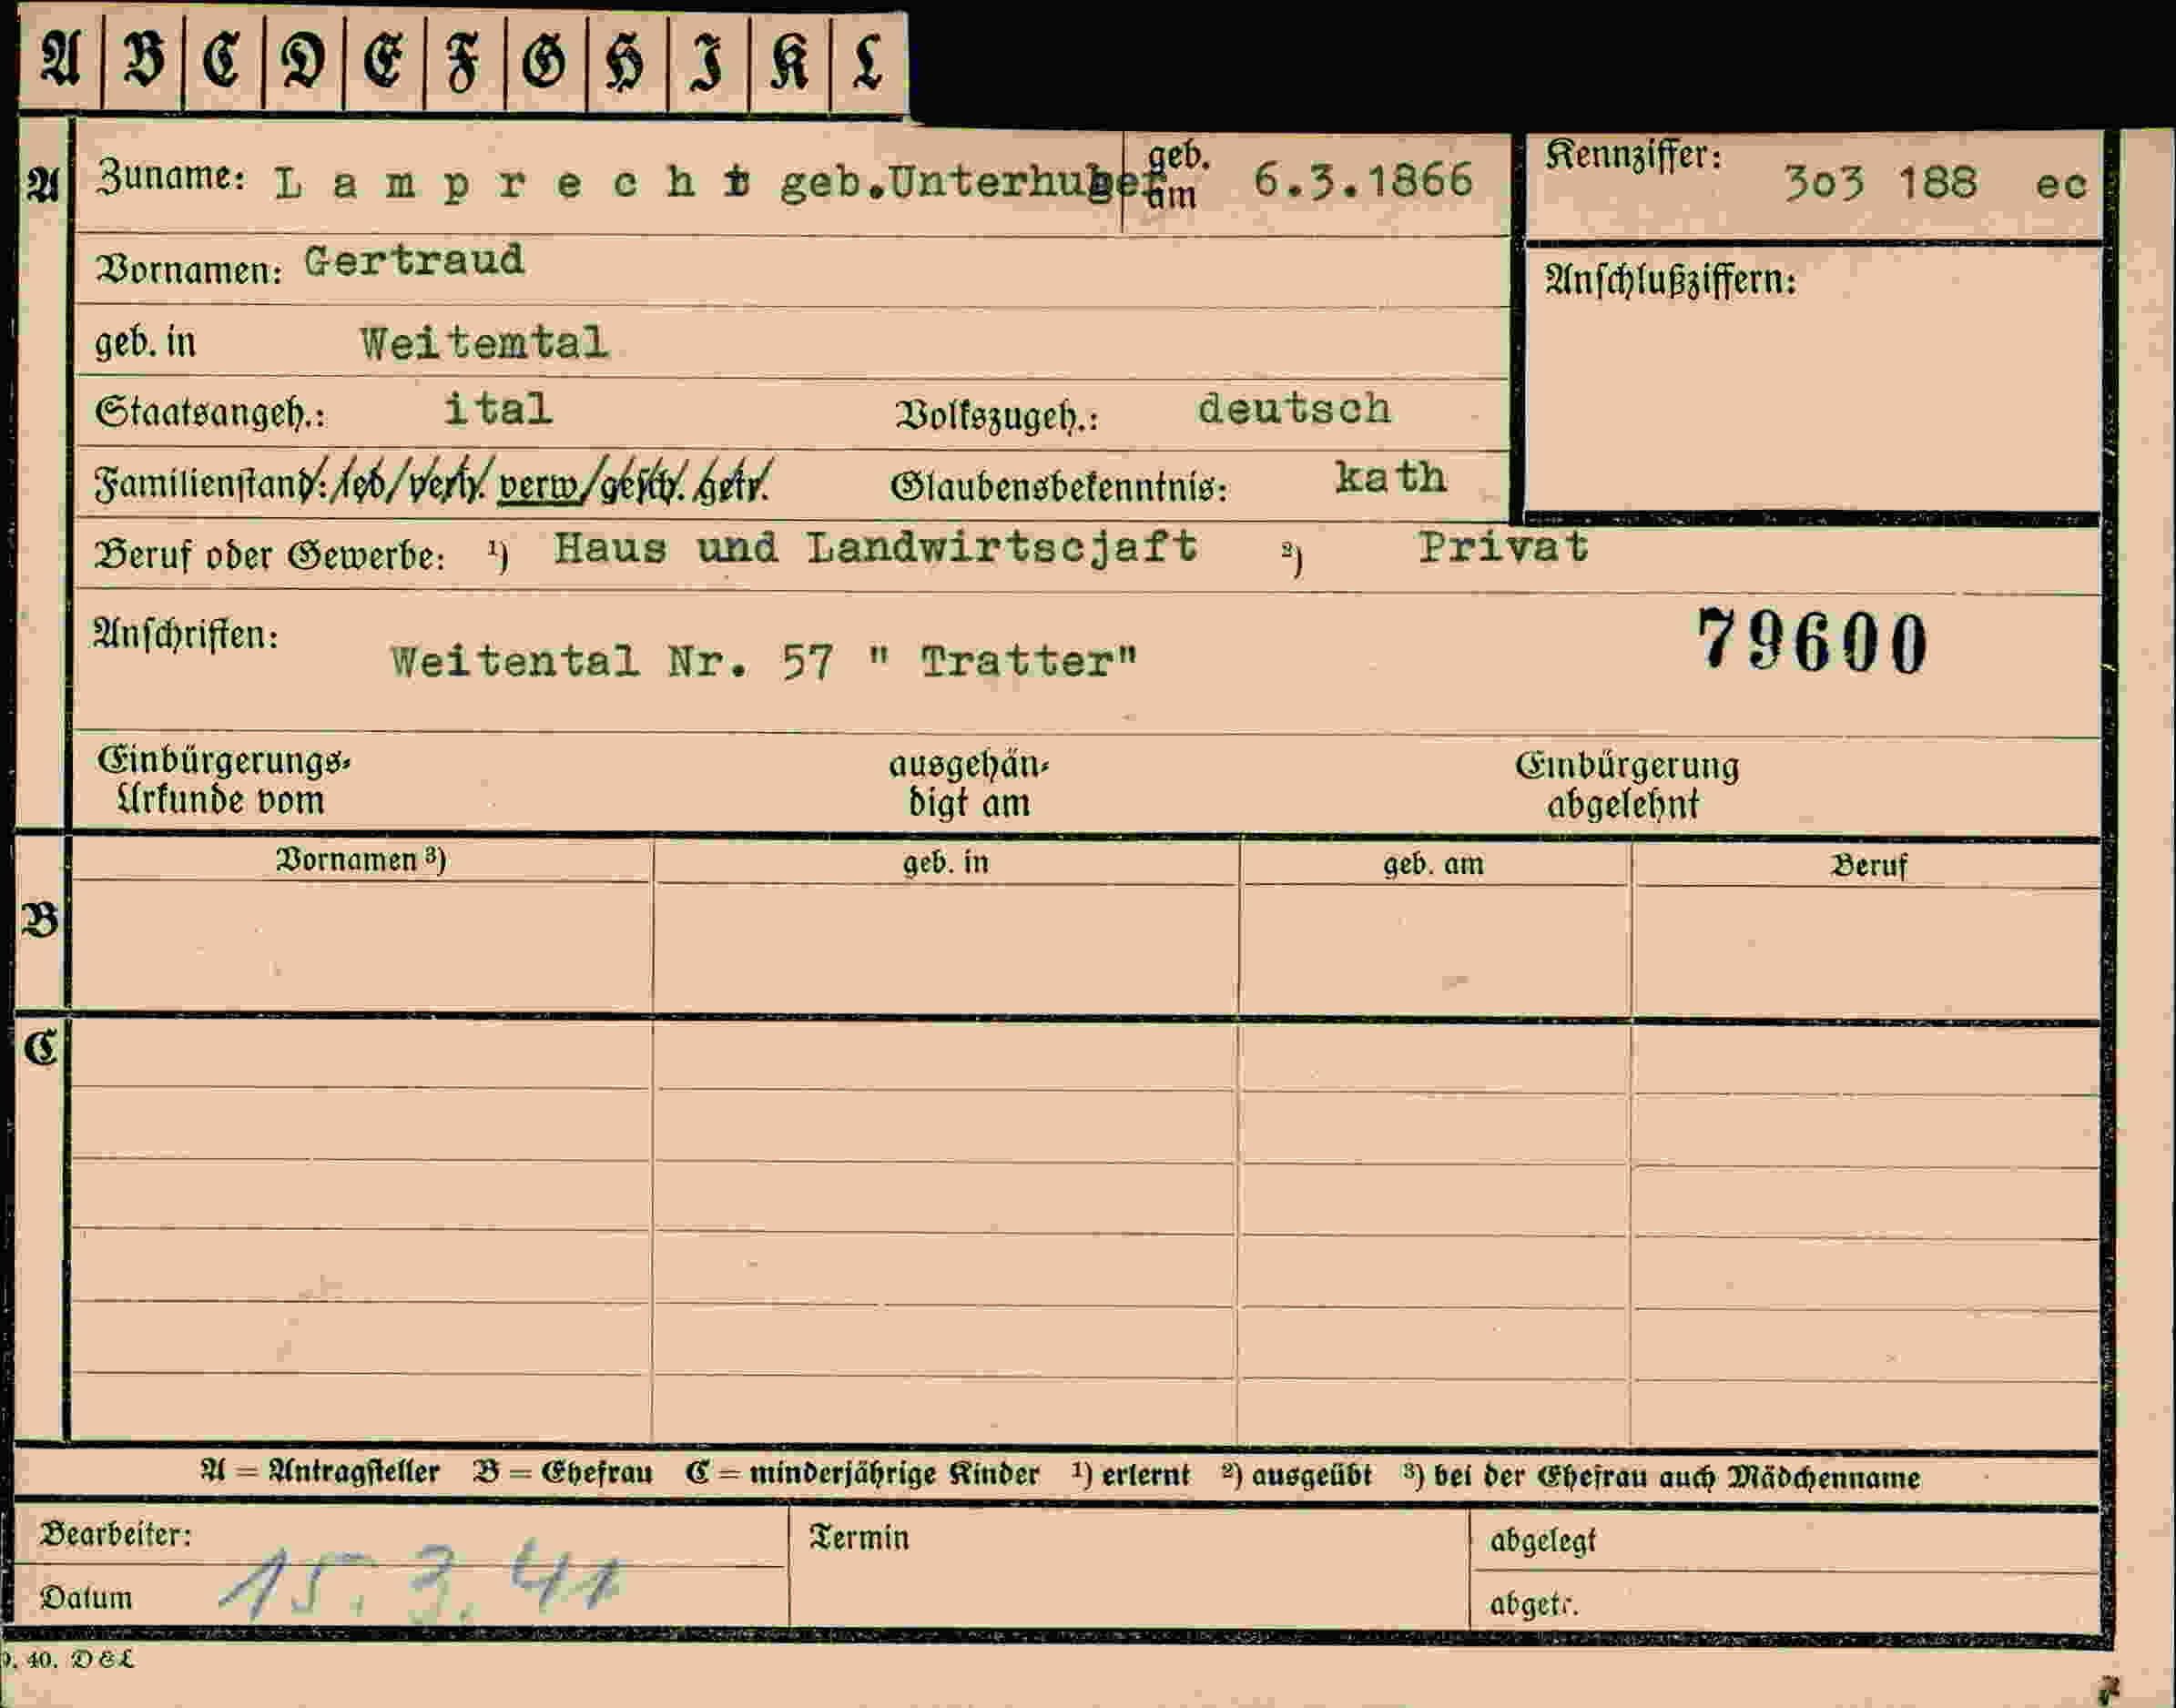 A B C D E F G H I K L
A Zuname: L a m p r e c h t geb.Unterhuber geb. am 6.3.1866 Kennziffer: 3o3 188 ec
Vornamen: Gertraud
Anschlußziffern:
geb. in Weitemtal
Staatsangeh.: ital Volkszugeh.: deutsch
Familienstand: led/verh. verw/gesch. getr. Glaubensbekenntnis: kath
Beruf oder Gewerbe: 1) Haus und Landwirtscjaft 2) Privat
79600
Anschriften: Weitental Nr. 57 " Tratter"
Einbürgerungs- ausgehän- Einbürgerung
Urkunde vom digt am abgelehnt
Vornamen 3) geb. in geb. am Beruf
B
C
A = Antragsteller B = Ehefrau C = minderjährige Kinder 1) erlernt 2) ausgeübt 3) bei der Ehefrau auch Mädchenname
Bearbeiter: Termin abgelegt
Datum 15. 3. 41 abgetr.
40. D&L